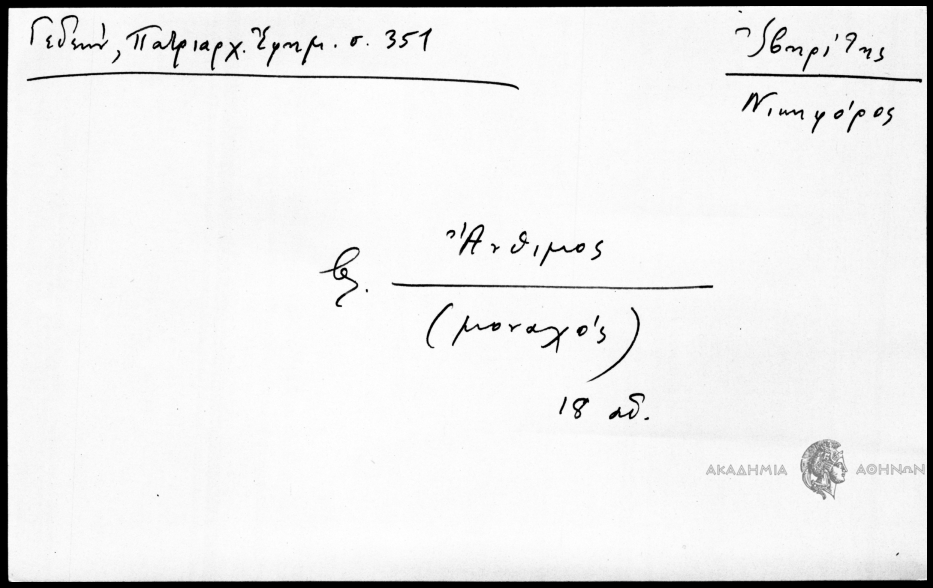 Γεδεών, Πατριαρχ. Ἐφημ. σ. 351
Ἰβηρίτης
Νικηφόρος
βλ. Ἄνθιμος
(μοναχός)
18 αἰ.
ΑΚΑΔΗΜΙΑ ΑΘΗΝΩΝ